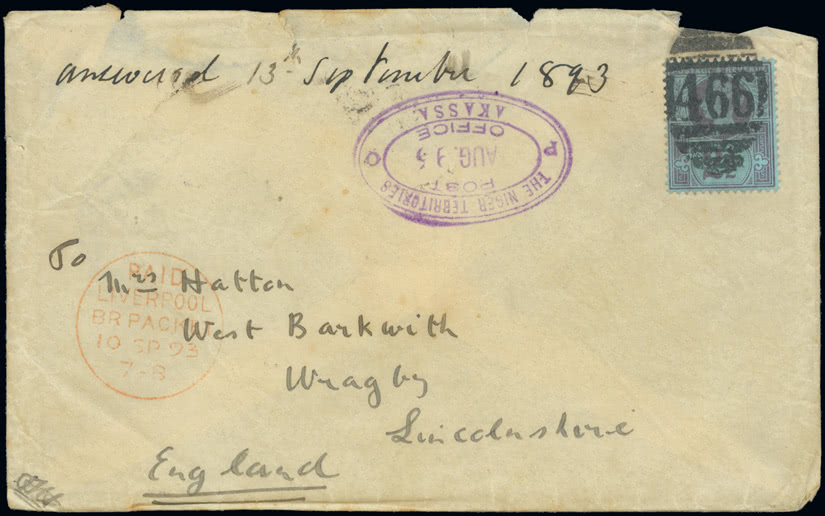 answered 13th September 1893
466
THE NIGER TERRITORIES
POST
AUG. 9 3
OFFICE
AKASSA
To
Mrs Hatton
West Barkwith
Wragby
Lincolnshire
England
PAID
LIVERPOOL
BR PACKET
10 SP 93
7-B